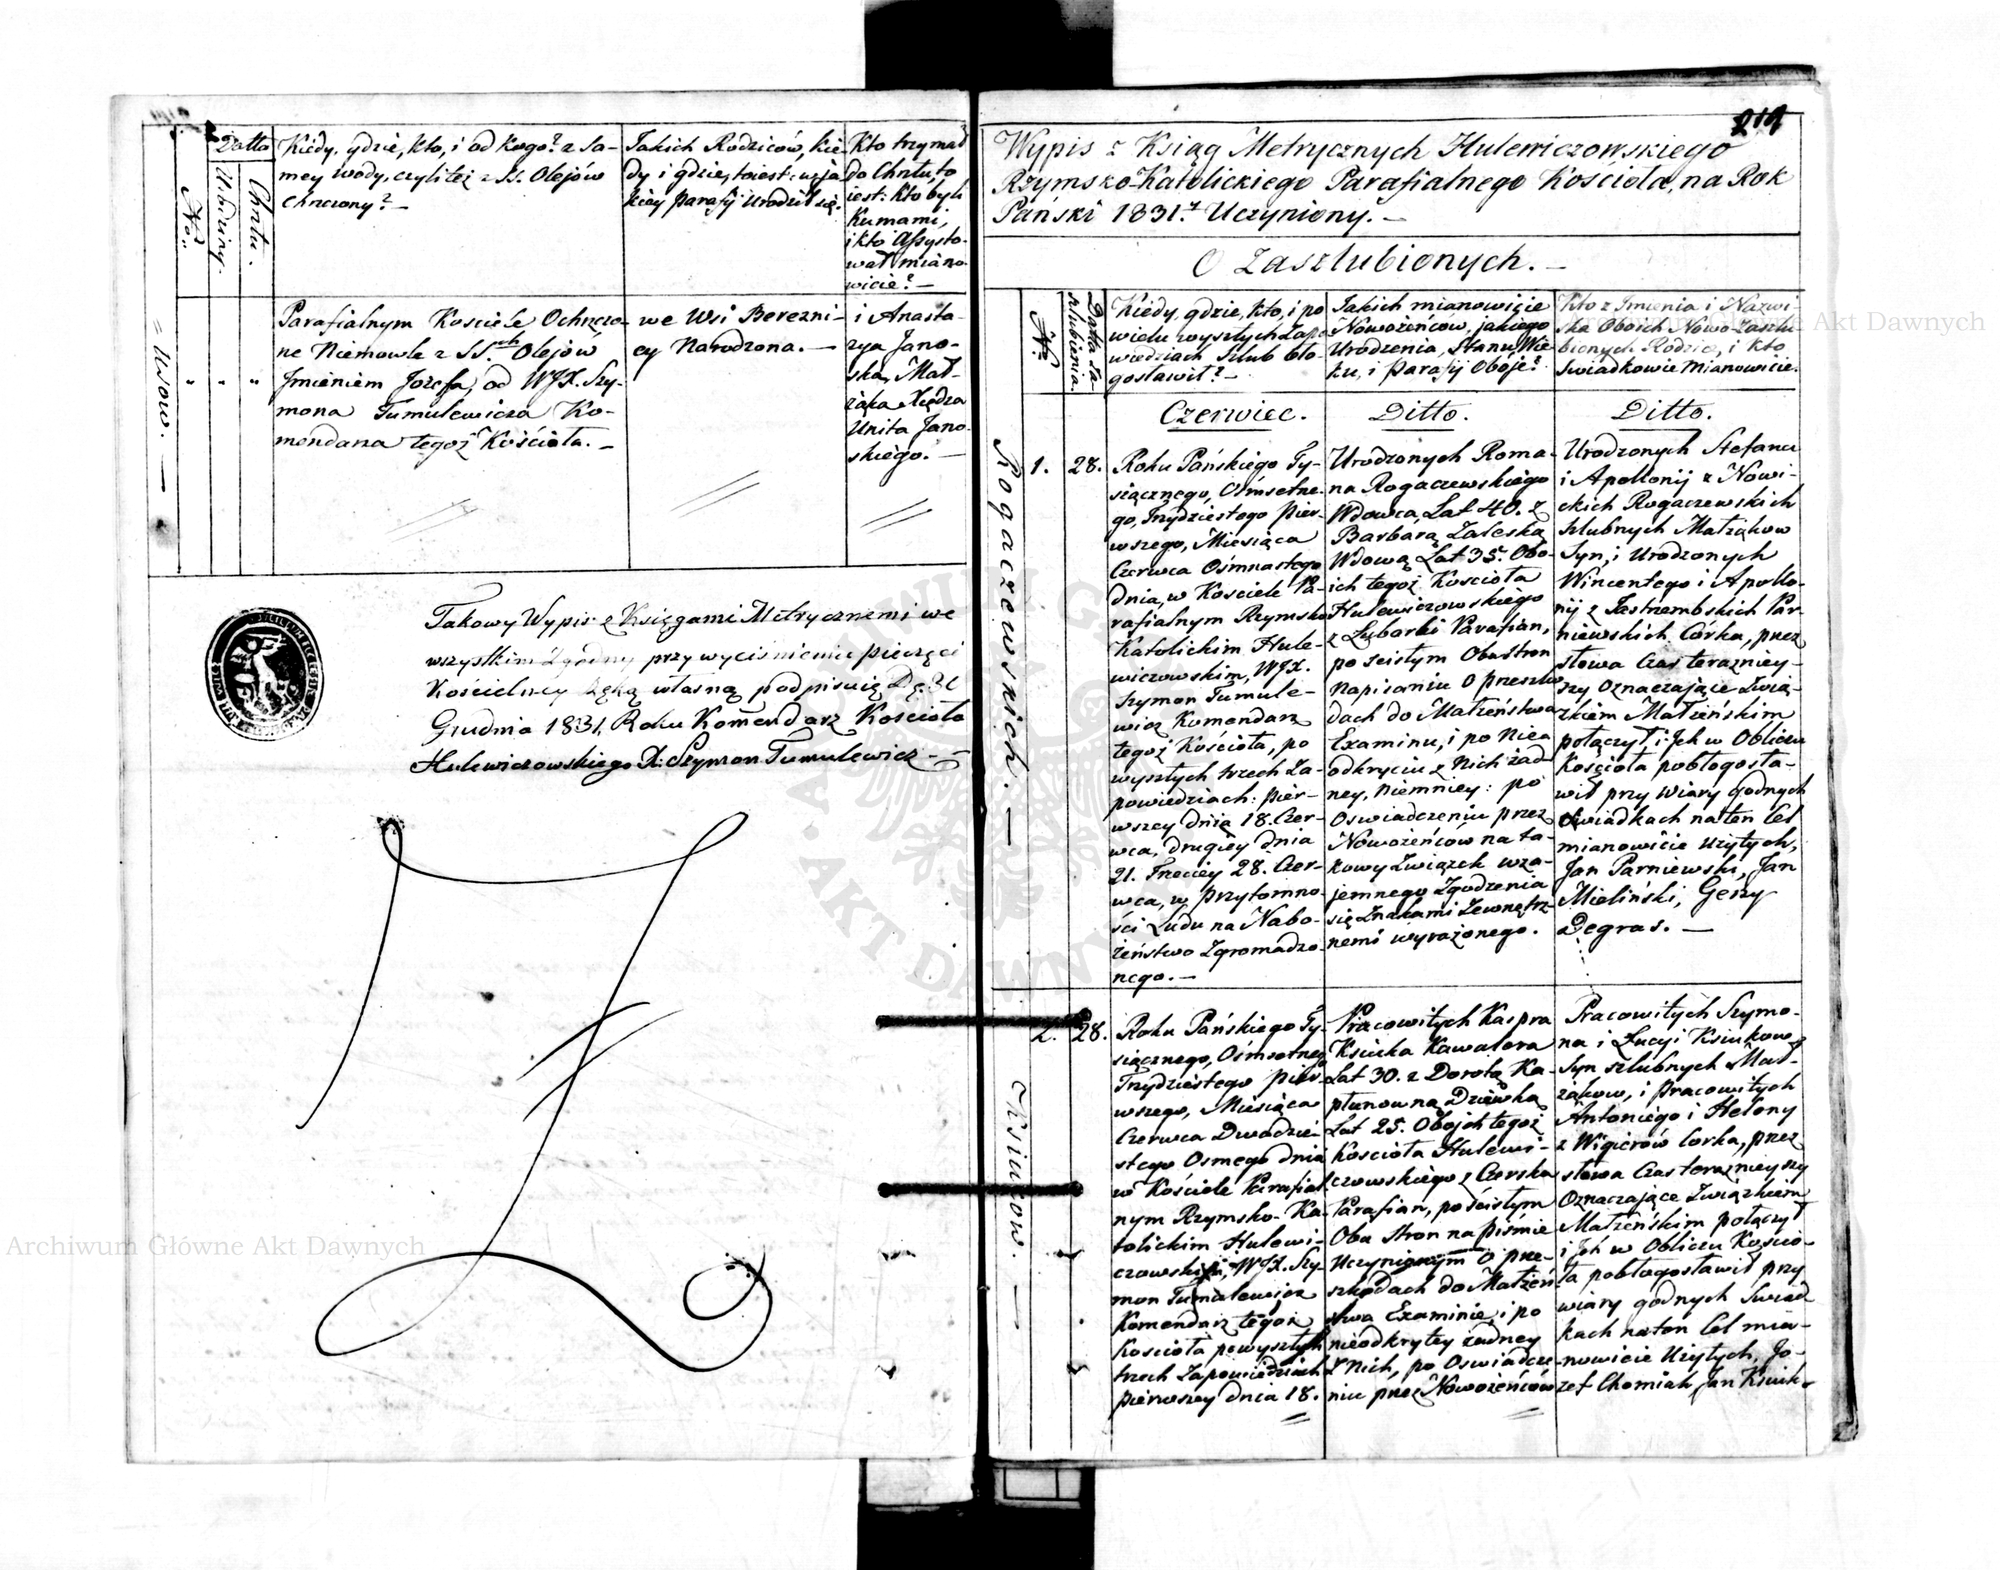 No.
Datta
Urodziny.
Chrztu.
Kiedy, gdzie, kto, i od kogo? z Sa-
mey wody, czyli też z SS. Olejów
Chrzczony? —
Jakich Rodziców, kie-
dy i gdzie, to iest: w ja-
kiey parafij urodził się.
Kto trzymał
do Chrztu, to
iest: kto byli
Kumami,
i kto Assysto-
wał miano-
wicie? —
Parafialnym Kosciele Ochrzczo-
ne Niemowle z SS.ch Olejów
Jmieniem Jozefa, od WJX. Szy-
mona Tumulewicza Ko-
mendarza tegoż Kościoła. —
we Wsi Berezni-
cy Narodzona. —
i Anasta-
zya Jano-
ska, Mał-
żąka Xiędza
Unita Jano-
skiego. —
Takowy Wypis z Księgami Metrycznemi we
wszystkim Zgodny przy wyciśnieniu pieczęci
Kościelney ręką własną podpisuię D. 31
Grudnia 1831, Roku Komendarz Kościoła
Hulewiczowskiego X: Szymon Tumulewicz —
219
Wypis z Ksiąg Metrycznych Hulewiczowskiego
Rzymsko-Katolickiego Parafialnego Kosciola, na Rok
Pański 1831. Uczyniony. —
O Zaszlubionych. —
No.
Datta za-
szlubienia.
Kiedy, gdzie, kto, i po
wielu wyszłych Zapo-
wiedziach Szlub bło-
gosławił? —
Jakich mianowicie
Nowożeńcow, jakiego
Urodzenia, Stanu, Wie-
ku, i Parafij Oboje?
Kto z Jmienia i Nazwi-
ska Oboich Nowo-Zaszlu-
bionych Rodzice, i kto
Swiadkowie mianowicie.
Czerwiec.
Ditto.
Ditto.
Rogaczewskich. —
1.
28.
Roku Pańskiego Ty-
siącznego, Ośmsetne-
go, Trzydziestego Pier-
wszego, Miesiąca
Czerwca Ośmnastego
dnia, w Kościele Pa-
rafialnym Rzymsko
Katolickim Hule-
wiczowskim, WJX.
Szymon Tumule-
wicz Komendarz
tegoż Kościoła, po
wyszłych trzech Za-
powiedziach: pier-
wszey dnia 18. Czer-
wca, drugiey dnia
21. Trzeciey 28. Czer-
wca, w przytomno-
ści Ludu na Nabo-
żeństwo Zgromadzo-
nego. —
Urodzonych Roma-
na Rogaczewskiego
Wdowca, Lat 40. z
Barbarą Zaleską
Wdową Lat 35. Obo-
ich tegoż Kosciola
Hulewiczowskiego
z Luborki Parafian,
po scistym Obustron
napisaniu O przeszko
dach do Małżeństwa
Examinu, i po niea
odkryciu z Nich żad
ney, niemniey: po
Oswiadczeniu przez
Nowożeńców na ta-
kowy Związek wza-
jemnego Zgodzenia
się Znakami Zewnętrz-
nemi wyrażonego.
Urodzonych Stefana
i Apollonij z Nowi-
ckich Rogaczewskich
szlubnych Małżąkow
Syn, i Urodzonych
Wincentego i Apollo-
nij z Jastrzembskich Par-
niewskich Córka, przez
słowa Czas terazniey-
szy Oznaczające Zwią-
zkiem Małżeńskim
połączył i Jch w Obliczu
Kościoła pobłogosła-
wił przy Wiary Godnych
Swiadkach na ten Cel
mianowicie Użytych,
Jan Parniewski, Jan
Mieliński, Gerzy
Degras. —
Ksiukow. —
2.
28.
Roku Pańskiego Ty-
siącznego, Ośmsetnego
Trzydziestego pier-
wszego, Miesiąca
Czerwca Dwudzie-
stego Osmego dnia
w Kościele Parafial-
nym Rzymsko-Ka-
tolickim Hulewi-
czowskim, WJX. Szy-
mon Tumulewicz
Komendarz tegoż
Kościoła po wyszłych
trzech Zapowiedziach
pierwszey dnia 18.
Pracowitych Kaspra
Ksiuka Kawalera
Lat 30. z Dorotą Ka-
płunowną Dziewką
Lat 25. Obojch tegoż
Kościoła Hulewi-
czowskiego z Czerska
Parafian, po ścisłym
Obu Stron na piśmie
Uczynionym O prze-
szkodach do Małżeń-
stwa Examinie, i po
nieodkrytey żadney
z Nich, po Oswiadcze-
niu przez Nowożeńców
Pracowitych Szymo-
na i Łucyi Ksiukow
Syn szlubnych Mał-
żąkow, i Pracowitych
Antoniego i Heleny
z Wigierow Corka, przez
słowa Czas teraznieyszy
Oznaczające Związkiem
Małżeńskim połączył
i Jch w Obliczu Koscio-
ła pobłogosławił przy
wiary godnych Swiad
kach na ten Cel mia-
nowicie Użytych, Jo-
zef Chomiak Jan Ksiuk
Archiwum Główne Akt Dawnych